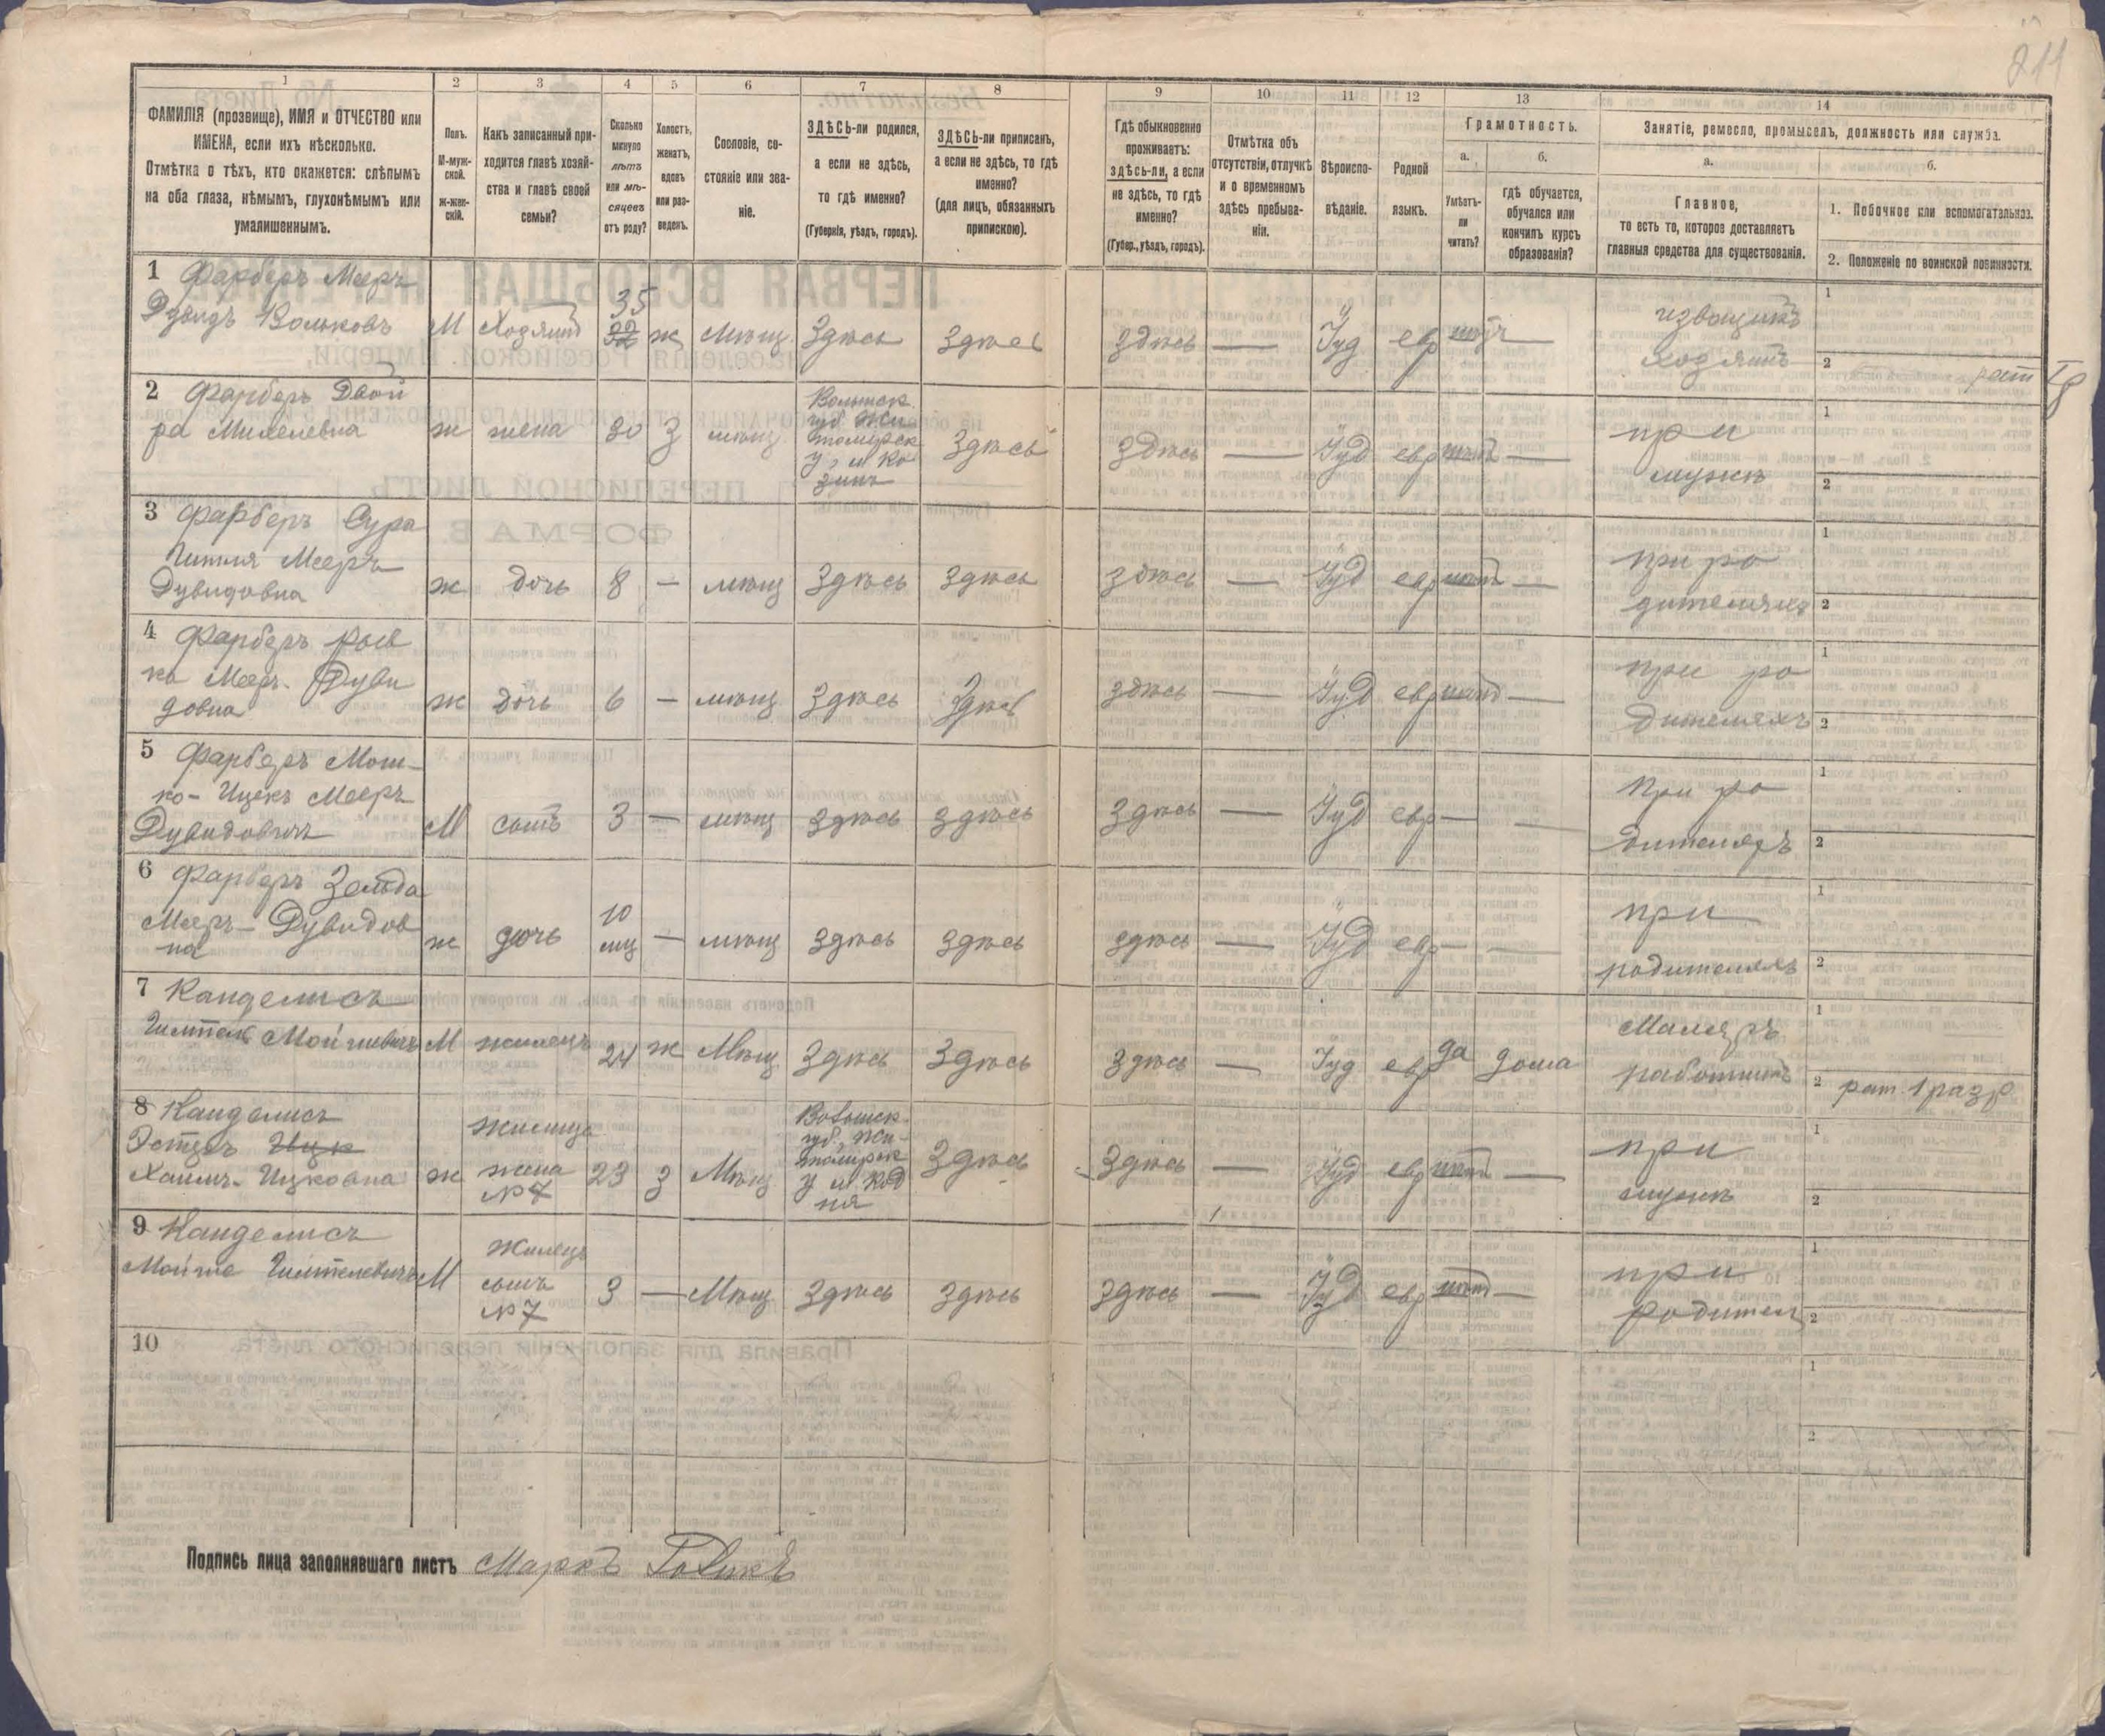 211
1
2
3
4
5
6
7
8
9
10
11
12
13
14
ФАМИЛІЯ (прозвище), ИМЯ и ОТЧЕСТВО или
ИМЕНА, если ихъ нѣсколько.
Отмѣтка о тѣхъ, кто окажется: слѣпымъ
на оба глаза, нѣмымъ, глухонѣмымъ или
умалишеннымъ.
Полъ.
М-муж-
ской.
ж-жен-
скій.
Какъ записанный при-
ходится главѣ хозяй-
ства и главѣ своей
семьи?
Сколько
минуло
лѣтъ
или мѣ-
сяцевъ
отъ роду?
Холостъ,
женатъ,
вдовъ
или раз-
веденъ.
Сословіе, со-
стояніе или зва-
ніе.
ЗДѢСЬ-ли родился,
а если не здѣсь,
то гдѣ именно?
(Губернія, уѣздъ, городъ).
ЗДѢСЬ-ли приписанъ,
а если не здѣсь, то гдѣ
именно?
(для лицъ, обязанныхъ
припискою).
Гдѣ обыкновенно
проживаетъ:
здѣсь-ли, а если
не здѣсь, то гдѣ
именно?
(Губер., уѣздъ, городъ).
Отмѣтка объ
отсутствіи, отлучкѣ
и о временномъ
здѣсь пребыва-
ніи.
Вѣроиспо-
вѣданіе.
Родной
языкъ.
Грамотность.
а.
Умѣетъ-
ли
читать?
б.
гдѣ обучается,
обучался или
кончилъ курсъ
образованія?
Занятіе, ремесло, промыселъ, должность или служба.
а.
Главное,
то есть то, которое доставляетъ
главныя средства для существованія.
б.
1. Побочное или вспомогательное.
2. Положеніе по воинской повинности.
1 Фарберъ Мееръ
Дувидъ Вольковъ М Хозяинъ 35 32 ж Мѣщ. Здѣсь Здѣсь здѣсь — Іуд евр нѣтъ — извощикъ хозяинъ 1 2 рат
2 Фарберъ Двой
ра Михелевна ж жена 30 З мѣщ Волынск. губ Жи томирск у, м Ко Здѣсь здѣсь — Іуд евр нѣтъ — при мужѣ 1 2
3 Фарберъ Сура
Гитля Мееръ
Дувидовна ж дочь 8 — мѣщ Здѣсь Здѣсь здѣсь — Іуд евр нѣтъ — при ро дителяхъ 1 2
4 Фарберъ Рыв
ка Мееръ-Дуви
довна ж дочь 6 — мѣщ Здѣсь Здѣсь здѣсь — Іуд евр нѣтъ — при ро дителяхъ 1 2
5 Фарберъ Мош-
ко-Ицекъ Мееръ
Дувидовичъ М сынъ 3 — мѣщ здѣсь здѣсь здѣсь — Іуд евр — — при ро дителяхъ 1 2
6 Фарберъ Зельда
Мееръ-Дувидов
на ж дочь 10 мц — мѣщ здѣсь здѣсь здѣсь — Іуд евр — — при родителяхъ 1 2
7 Канделисъ
Мойшевичъ М жилецъ 24 ж Мѣщ Здѣсь Здѣсь Здѣсь — Іуд евр да дома Маляръ работникъ 1 2 рат. 1 разр
8 Канделисъ
Эстеръ Ицк
Хаимъ-Ицковна ж жилица жена №7 23 з Мѣщ Волынск. губ, Жи- томирск у м Код ня Здѣсь Здѣсь — Іуд евр нѣтъ — при мужѣ 1 2
9 Канделисъ
Мойше М Жилецъ сынъ №7 3 — Мѣщ Здѣсь здѣсь здѣсь — Іуд евр нѣтъ — при родител 1 2
10
1
2
Подпись лица заполнявшаго листъ Маркъ